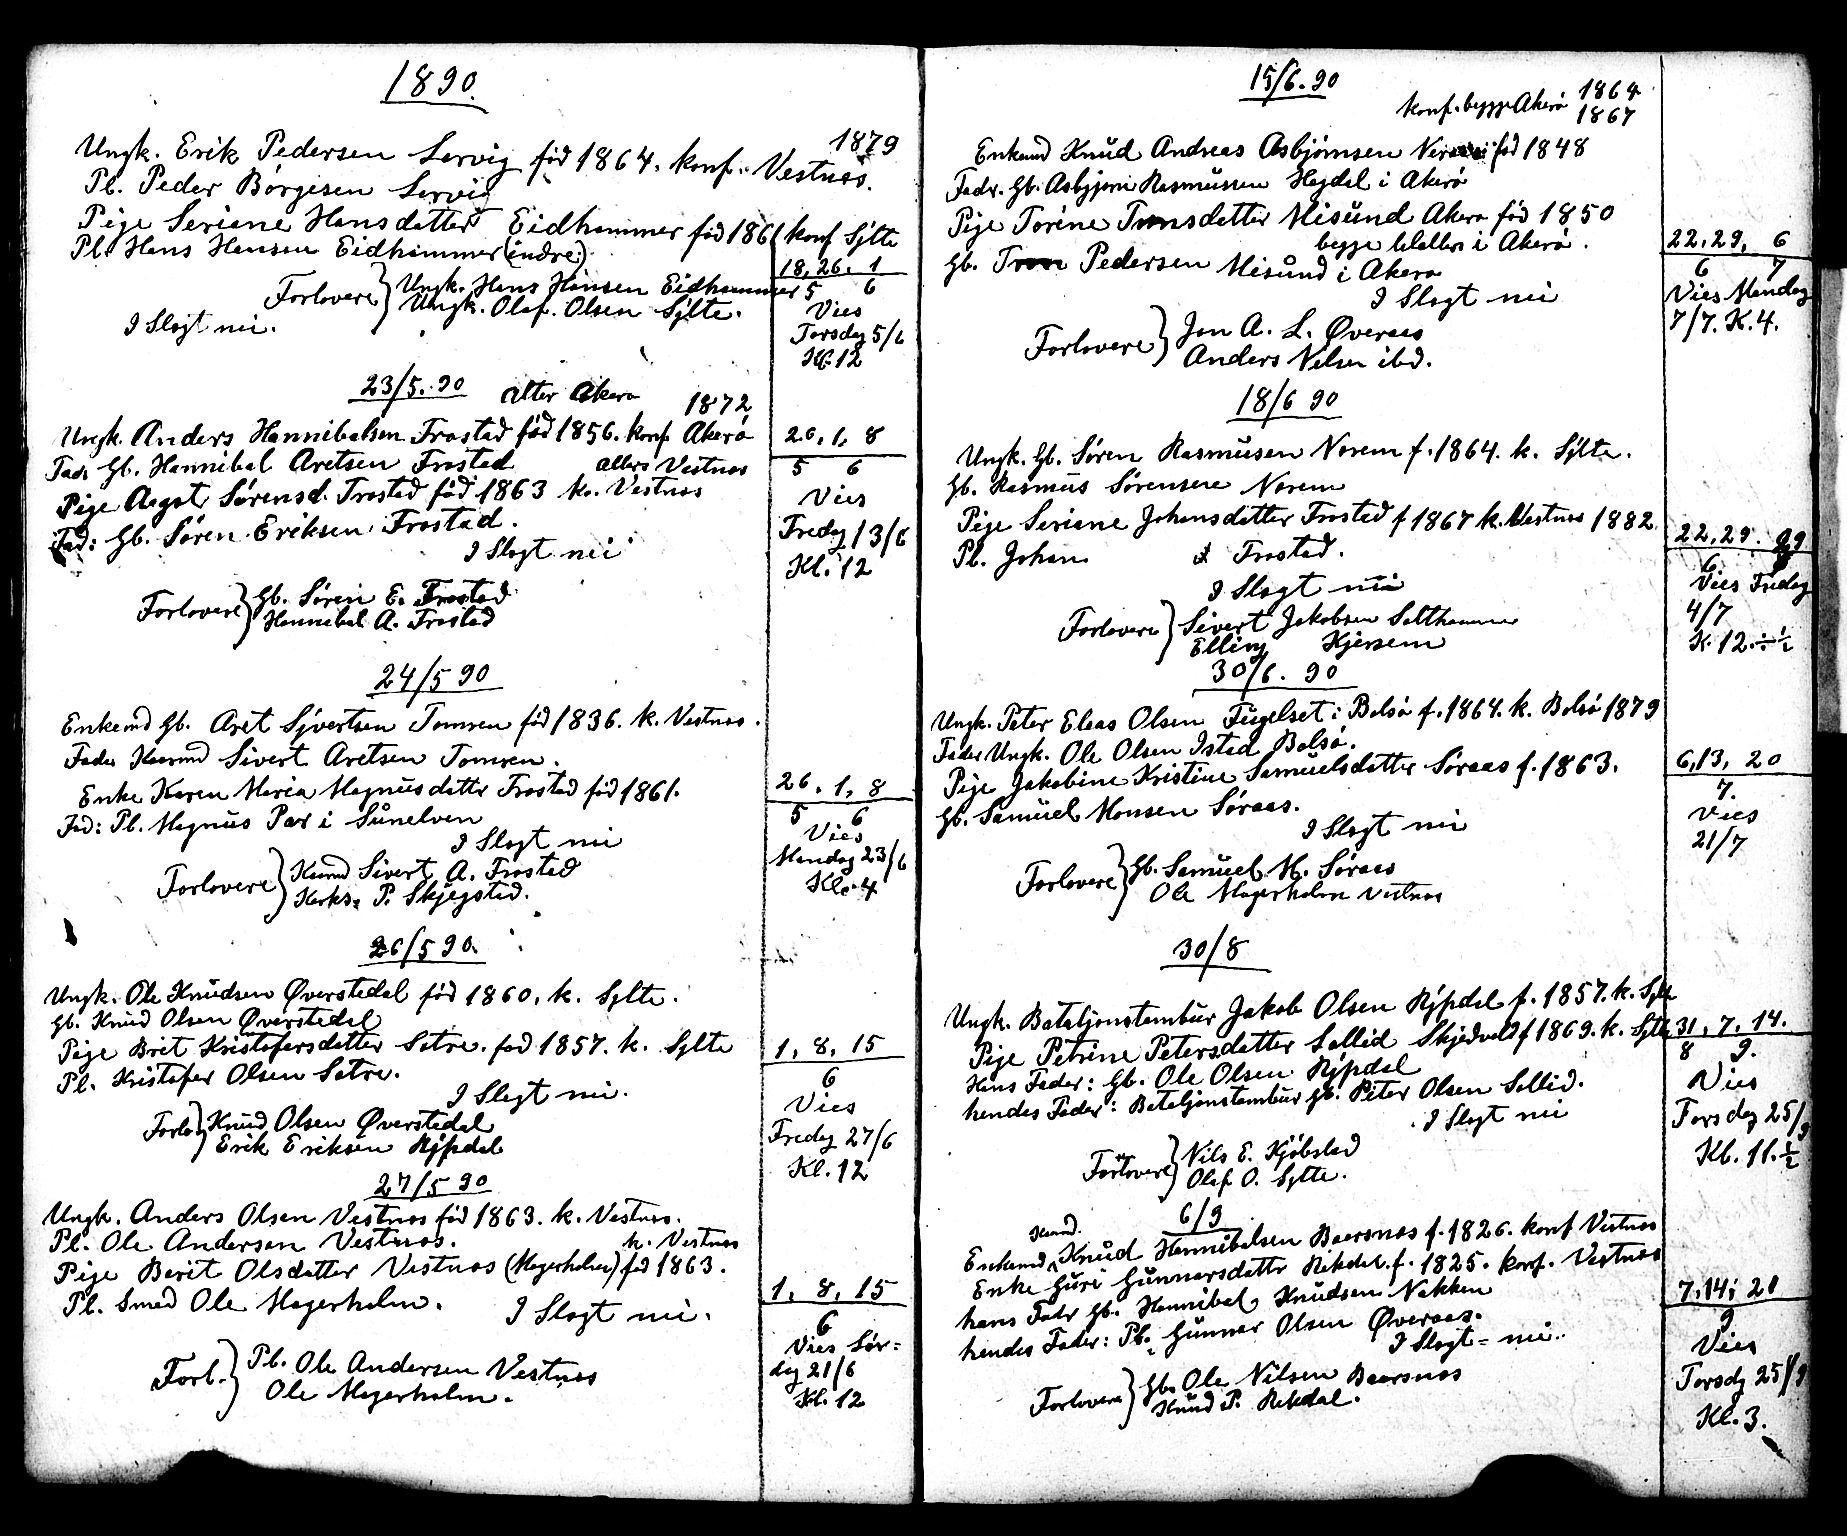 1890.
1879
Ungk. Erik Pedersen Lervig fød 1864. konf. Vestnes.
Pl. Peder Børgesen Lervig
Pige Seriane Hansdatter Eidhammer fød 1861 konf Sylte
Pl. Hans Hansen Eidhammer (indre)
Forlovere } Ungk. Hans Hansen Eidhammer
Ungk. Olaf. Olsen Sylte.
I Slagt nei.
18, 26. 1
5 6
Vies
Torsdag 5/6
Kl. 12
23/5. 90
alter Akerø 1872
Ungk. Anders Hannibalsen Frostad fød 1856. konf Akerø
Fadr Gb. Hannibal Aretsen Frostad alters Vestnes
Pige Aagot Sørensd. Frostad fød 1863 ko. Vestnes
Fad: Gb. Søren Eriksen Frostad.
I Slagt nei
Forlovere } Gb. Søren E. Frostad
Hannibal A. Frostad
26, 1, 8
5 6
Vies
Fredag 13/6
Kl. 12
24/5 90
Enkemd Gb. Aret Sjvertsen Tomren fød 1836. k. Vestnes.
Fader Kaarmd Sivert Aretsen Tomren.
Enke Karen Maria Magnusdattr Frostad fød 1861.
Fad: Pl. Magnus Par i Sunelven
I Slagt nei
Forlovere } Kaarmd Sivert A. Frostad
Kirks. P. Skjegstad.
26. 1, 8
5 6
Vies
Mandag 23/6
Kl. 4
26/5 90.
Ungk. Ole Knudsen Øverstedal fød 1860. k. Sylte.
Gb. Knud Olsen Øverstedal
Pige Brit Kristofersdatter Satre. fød 1857. k. Sylte
Pl. Kristofer Olsen Satre.
I Slagt nei.
Forlo } Knud Olsen Øverstedal
Erik Eriksen Rypdal
1, 8, 15
6
Vies
Fredag 27/6
Kl. 12
27/5 90
Ungk. Anders Olsen Vestnes fød 1863. k. Vestnes.
Pl. Ole Andersen Vestnes. k. Vestnes
Pige Berit Olsdatter Vestnes (Magerholm) fød 1863.
Pl. Smed Ole Magerholm. I Slagt nei.
Forl. } Pl. Ole Andersen Vestnes
Ole Magerholm.
1, 8, 15
6
Vies Lør=
dag 21/6
Kl. 12
15/6. 90
konf. begge Akerø 1864
1867
Enkemd Knud Andreas Asbjørnsen fød 1848
Fadr. Gb. Asbjørn Rasmussen Hagdal i Akerø
Pige Torine Tronsdatter Misund Akerø fød 1850
begge i Akerø.
Gb. Tron Pedersen Misund i Akerø
I Slagt nei
Forlovere } Jon A. L. Øveraas
Anders Nelsen ibd.
22, 29, 6
6 7
Vies Mandag
7/7. K. 4.
18/6 90
Ungk. Gb. Søren Rasmusen Norem f. 1864. k. Sylte.
Gb. Rasmus Sørensen Norem
Pige Seriane Johansdatter Frostad f 1867 k. Vestnes 1882
Pl. Johan Frostad.
I Slagt nei
Forlovere } Sivert Jakobsen Salthammer
Elling Kjersem
22, 29. 29
6
Vies Fredag
4/7
K. 12 ÷ ½
30/6. 90
Ungk. Peter Eleas Olsen Fugelset i Bolsø f. 1864. k. Bolsø 1879
Fader Ungk. Ole Olsen Istad Bolsø.
Pige Jakobine Kristine Samuelsdatter Søraas f. 1863.
Gb. Samuel Monsen Søraas.
I Slagt nei
Forlovere } Gb. Samuel M. Søraas
Ole Magerholm Vestnes
6, 13, 20
7.
Vies
21/7
30/8
Ungk. Bataljonstambur Jakob Olsen Rypdal f. 1857. k. Sylte
Pige Petrine Petersdatter Sollid Skjedvold f 1869. k. Sylte
Hans Fader: Gb. Ole Olsen Rypdal
hendes Fader: Bataljonstambur Gb. Peter Olsen Sollid.
I Slagt nei
Forlovere } Nils E. Kjøbstad
Olaf O. Sylte.
31, 7, 14.
8 9.
Vies
Torsdag 25/9
Kl. 11. ½
6/9
Kaarmd.
Enkemd Knud Hannibalsen Baarsnes f. 1826. konf Vestnes
Enke Guri Gunnarsdattr Rekdal. f. 1825. konf. Vestnes
hans Fadr Gb. Hannibal Knudsen Nakken
hendes Fader: Pl. Gunnar Olsen Øveraas.
I Slagt = nei.
Forlovere } Gb. Ole Nilsen Baarsnes
Knud P. Rekdal.
7, 14, 20
9
Vies
Torsdg 25/9
Kl. 3.